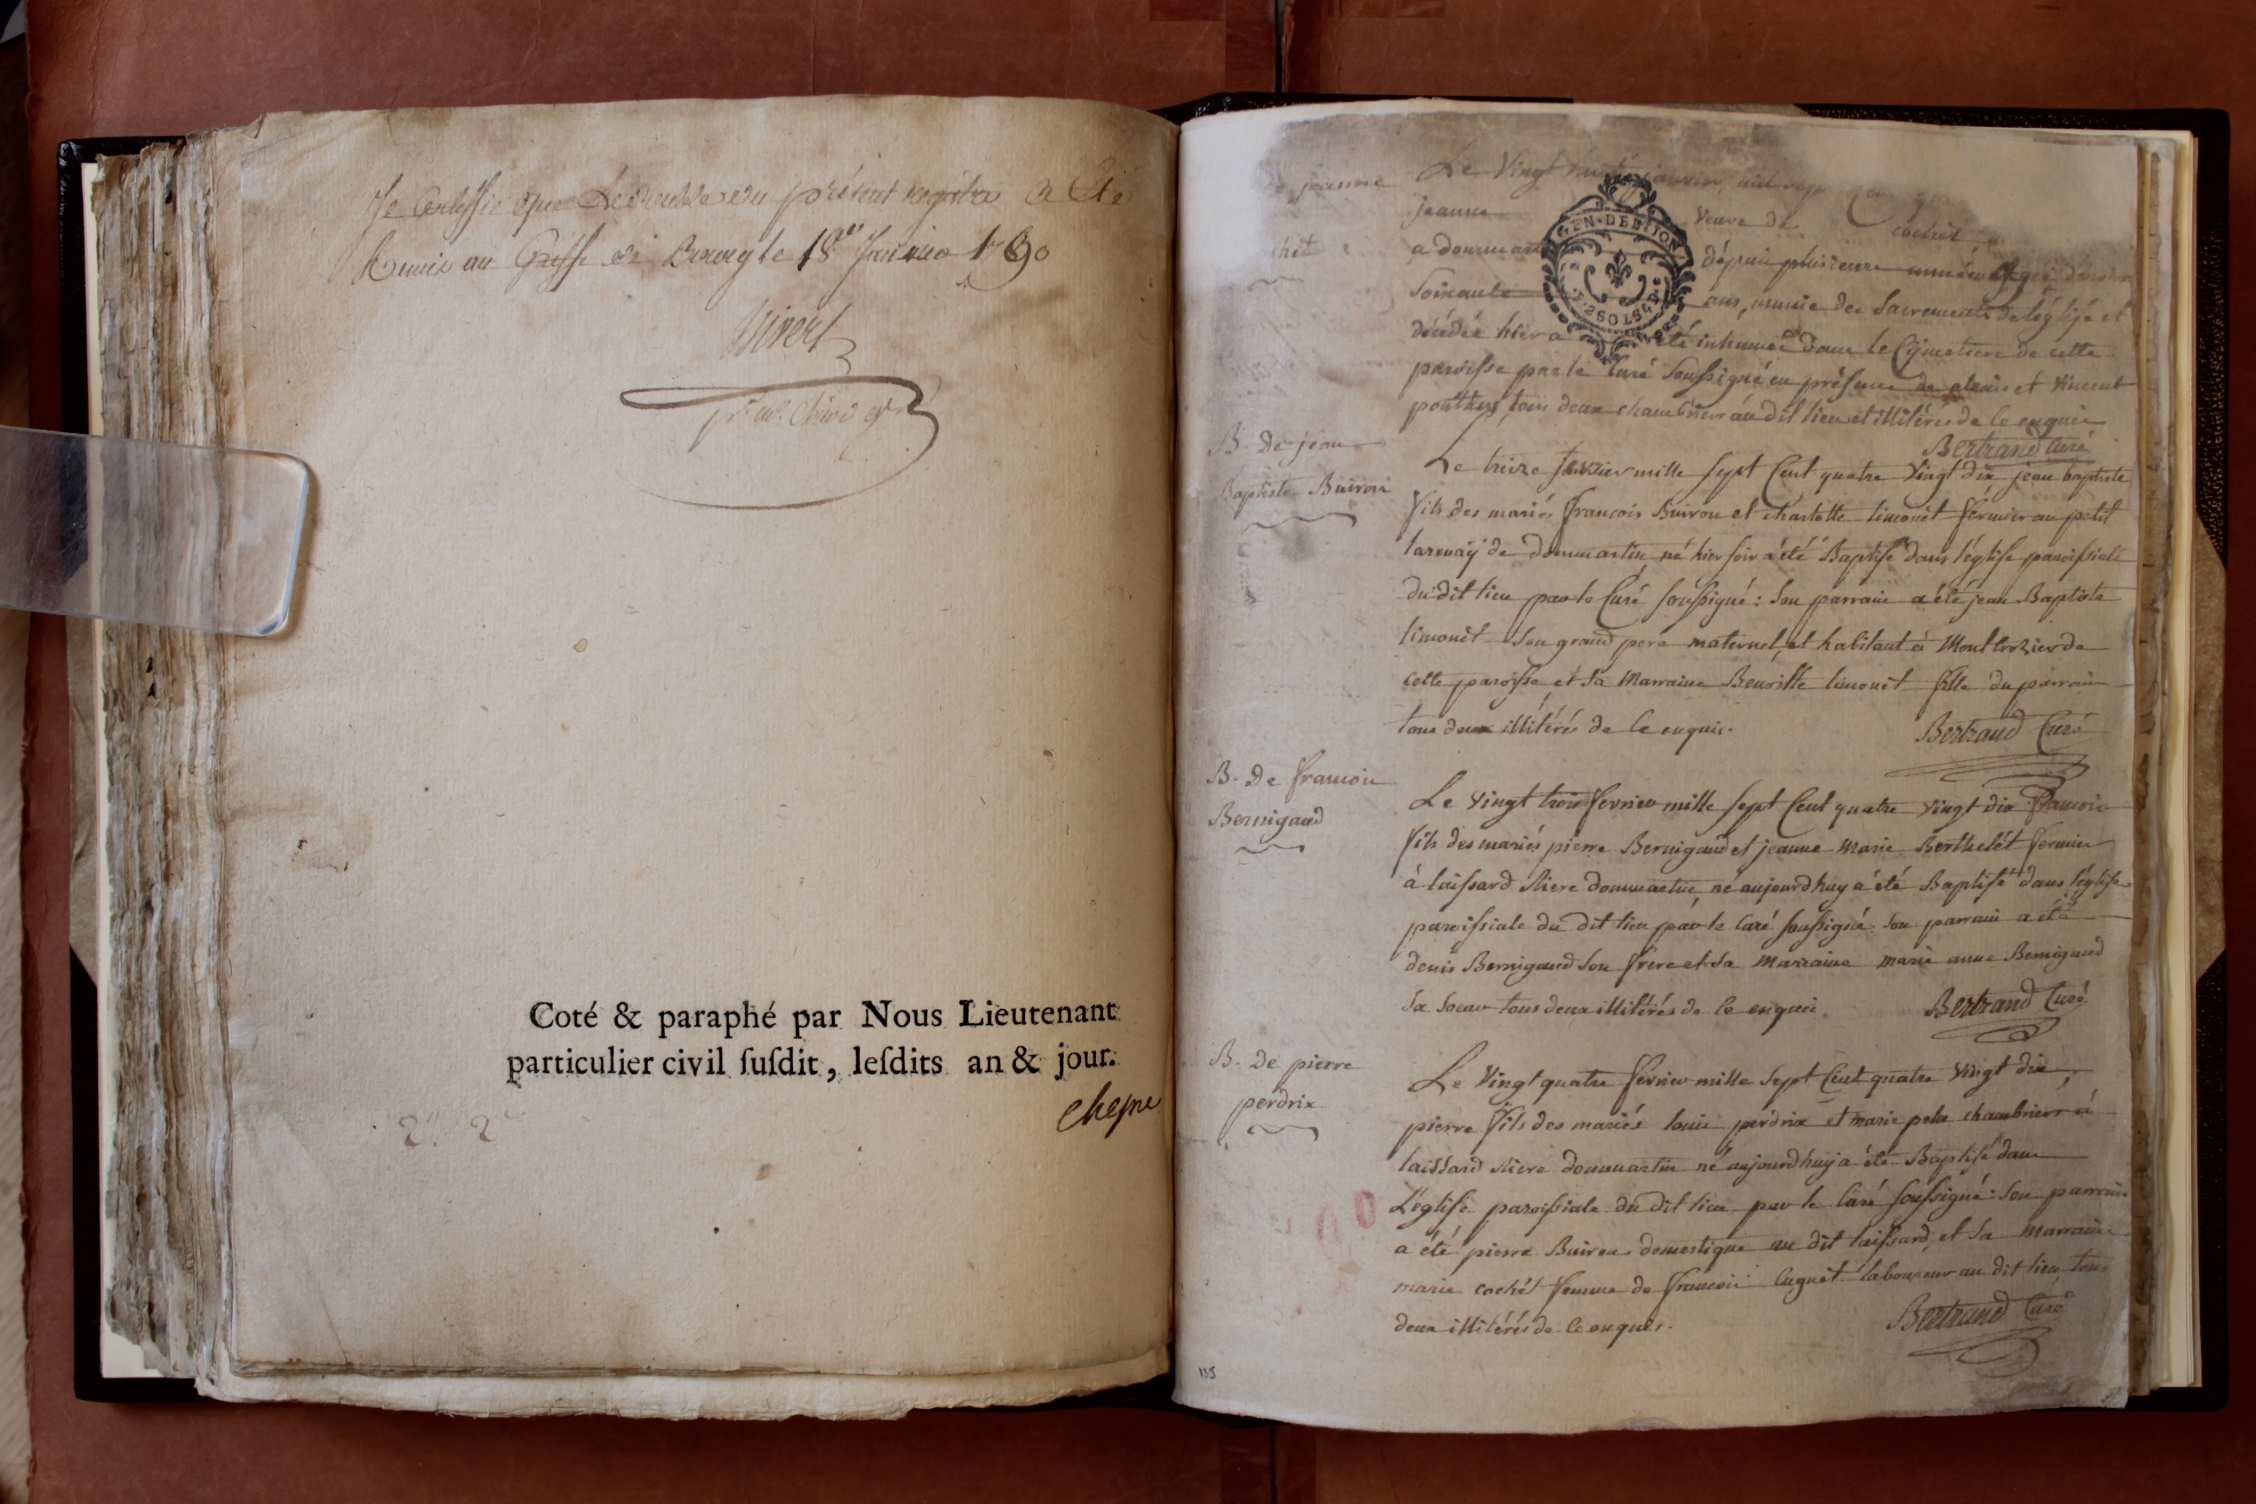 Je Certiffie que Le double du présent registre a Eté
Remis au Greffe de Bourg le 18 Janvier 1790
Coté & paraphé par Nous Lieutenant
particulier civil ſuſdit, leſdits an & jour.
Cheyne
Le Vingt janvier mil sept
jeanne Veuve de cochet
a dommartin dépuis plusieurs années
Soixante ans, munie des Sacrements de l'église et
décédée hier a été inhumée dans le Cymetiere de cette
paroisse par le Curé soussigné en présence de et Vincent
tous deux au dit lieu et illitérés de ce enquis
Bertrand Curé
B. De jean
Baptiste Buiron
Le treize fevrier mille sept Cent quatre Vingt dix jean baptiste
fils des mariés françois Buiron et charlotte limonêt fermier au petit
tarnaÿ de dommartin, né hier soir a été Baptisé dans l'église paroissiale
du dit lieu par le Curé soussigné: son parrain a été jean Baptiste
limonêt son grand pere maternel, et habitant à de
cette paroisse et sa Marraine Benoitte limonêt fille du parrain
tous deux illitérés de ce enquis.
Bertrand Curé
B. De francois
Bernigaud
Le Vingt trois fevrier mille sept Cent quatre Vingt dix francois
fils des mariés pierre Bernigaud et jeanne Marie Berthelét fermier
à laissard dommartin, né aujourdhuy a été Baptisé dans l'église
paroissiale du dit lieu par le Curé soussigné son parrain a été
denis Bernigaud son frere et sa Marraine marie anne Bernigaud
sa soeur tous deux illitérés de ce enquis.
Bertrand Curé
B. De pierre
perdrix
Le Vingt quatre fevrier mille sept Cent quatre Vingt dix,
pierre fils des mariés louis perdrix et marie à
laissard dommartin né aujourdhuy a été Baptisé dans
L'église paroissiale du dit lieu par le Curé soussigné: son parrain
a été pierre Buiron domestique au dit laissard, et sa Marraine
marie cochét femme de francois Cugnêt laboureur au dit lieu, tous
deux illitérés de ce enquis.
Bertrand Curé
135